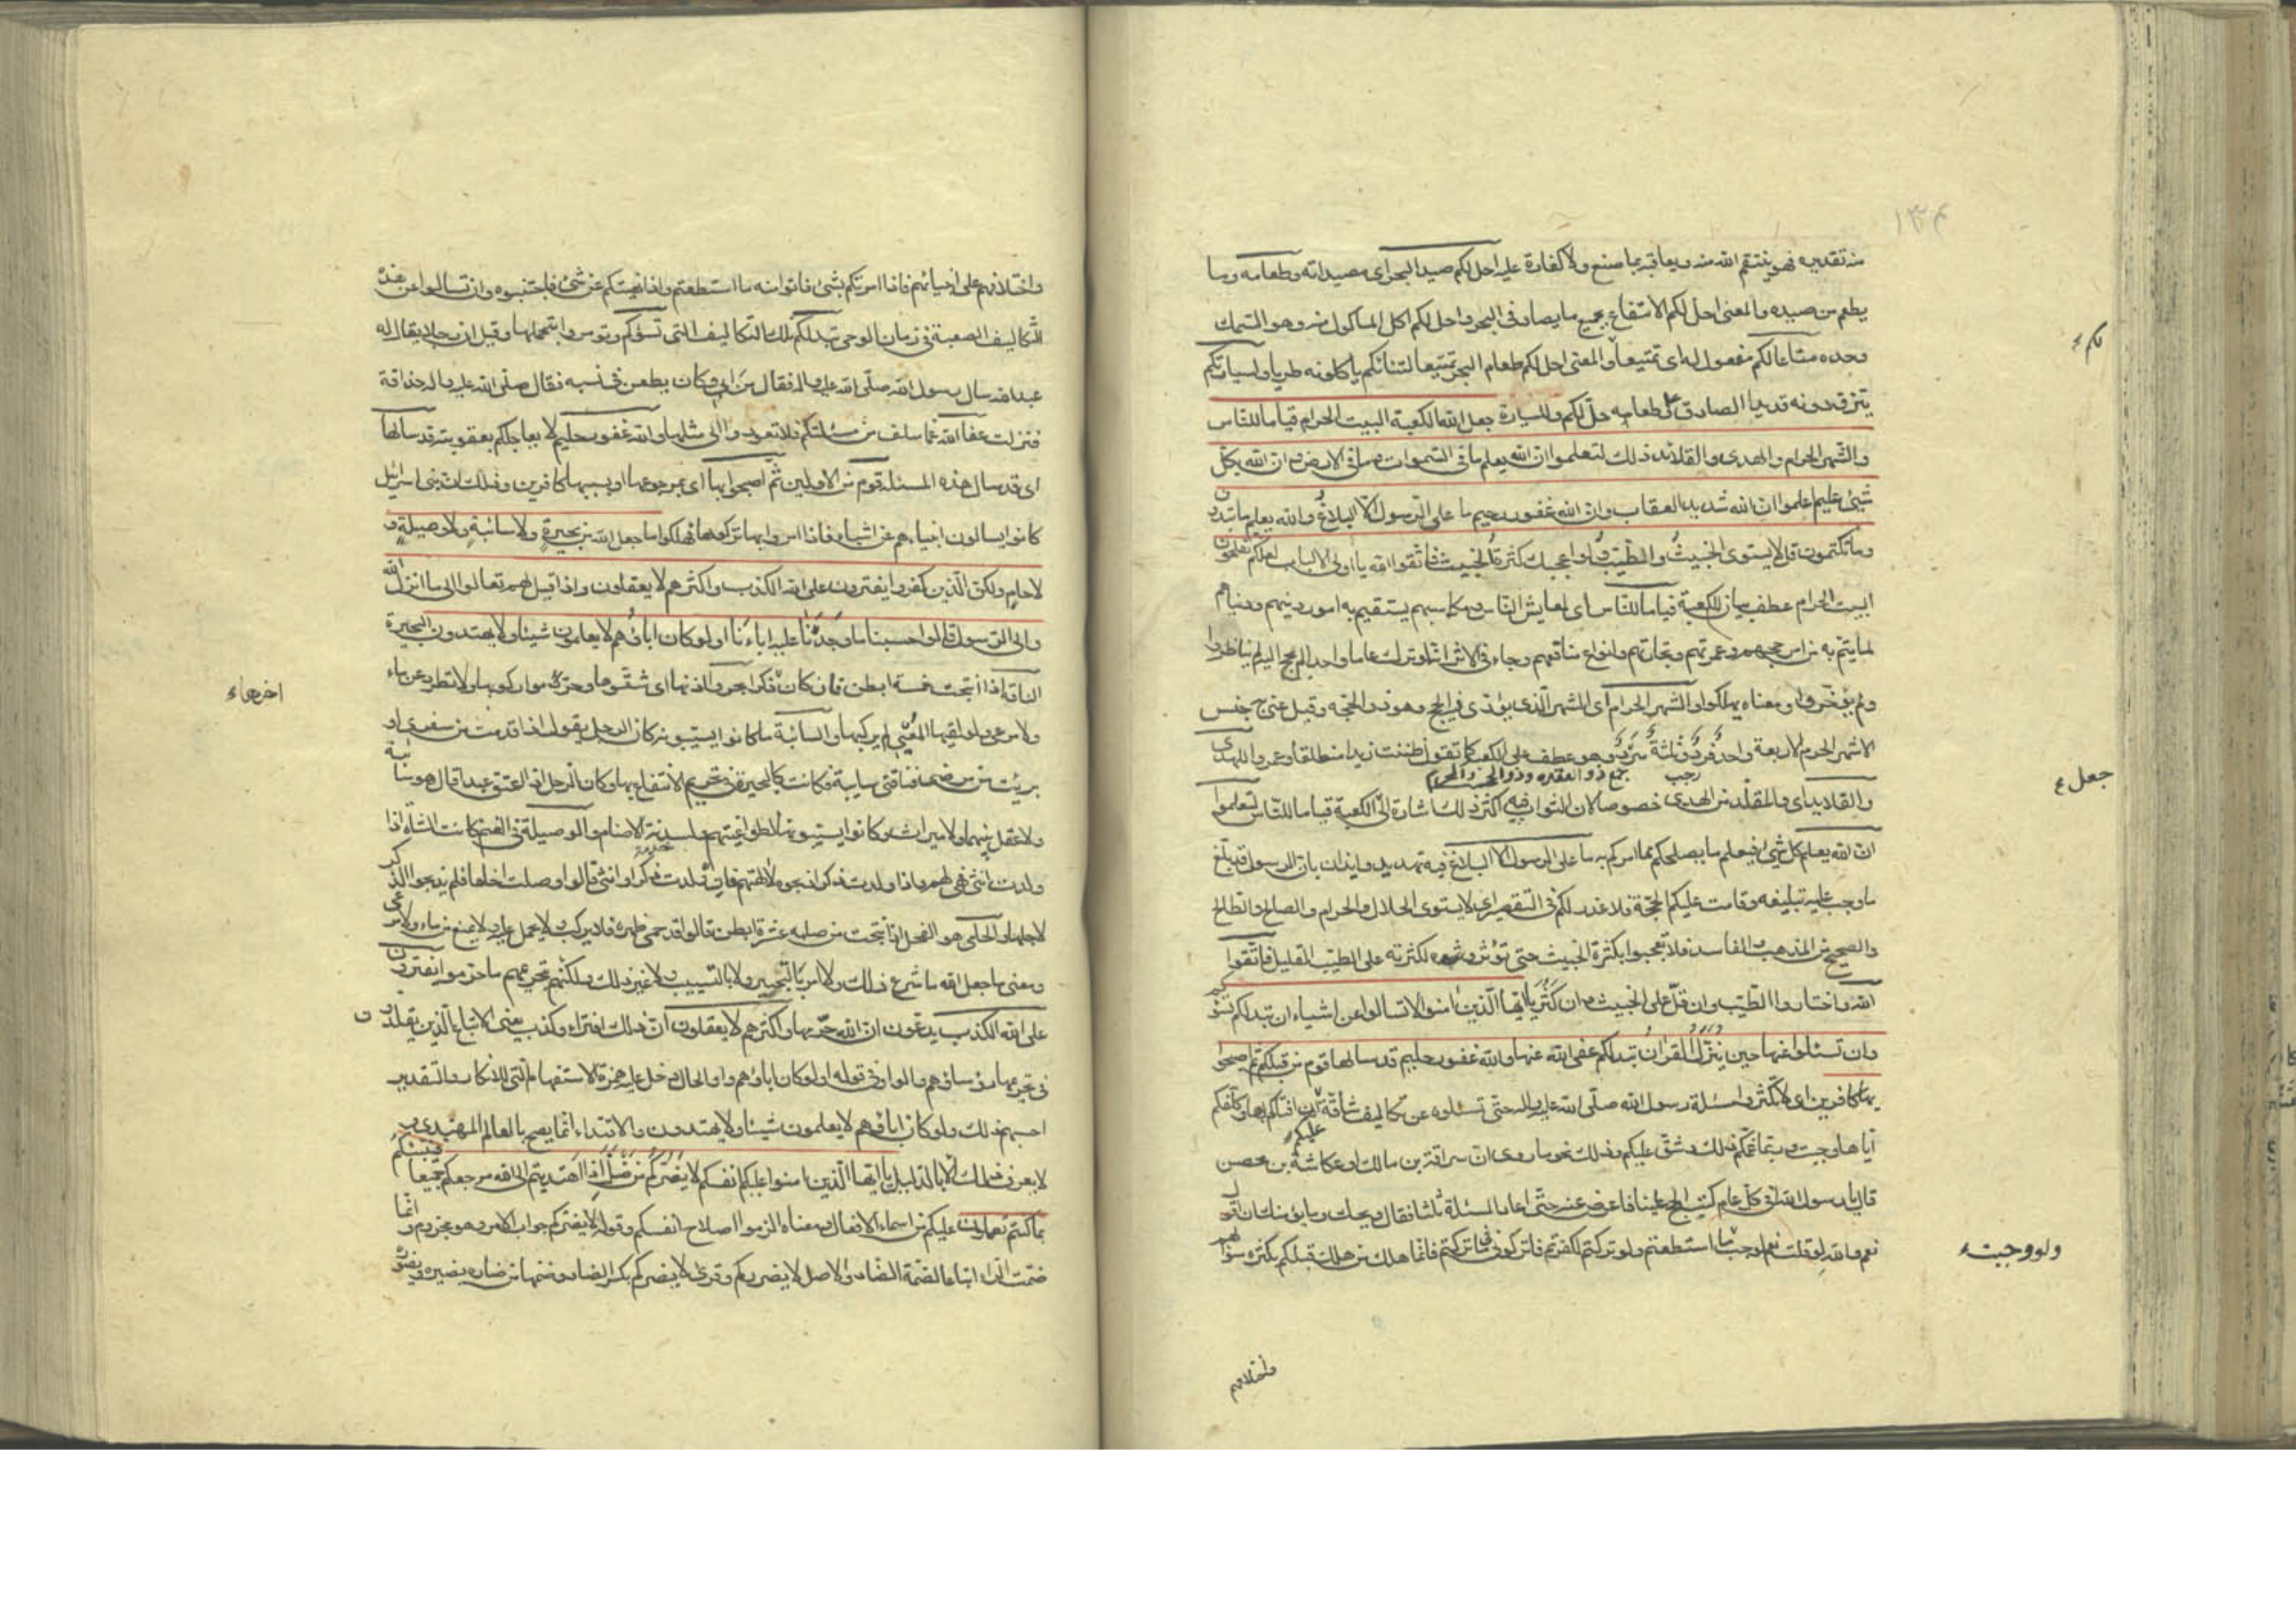 ١٣٤
منه تقديره فهو ينتقم الله منه ويعاقبه بما صنع ولا كفارة عليه احل لكم صيد البحر اى مصيداته وطعامه وما
يطعم من صيده والمعنى احل لكم الانتفاع بجميع ما يصاد فى البحر واحل لكم اكل الماكول منه وهو السمك
وحده متاعا لكم مفعول له اى تمتيعا والمعنى احل لكم طعام البحر تمتيعا لتنائكم ياكلونه طريا ولسيارتكم
لكم
يتزودونه قديدا الصادق ع طعامه حل لكم وللسيارة جعل الله الكعبة البيت الحرام قياما للناس
والشهر الحرام والهدى والقلائد ذلك لتعلموا ان الله يعلم ما فى السموات وما فى الارض وان الله بكل
شىء عليم اعلموا ان الله شديد العقاب وان الله غفور رحيم ما على الرسول الا البلاغ والله يعلم ما تبدون
وما تكتمون قل لا يستوى الخبيث والطيب ولو اعجبك كثرة الخبيث فاتقوا الله يا اولى الالباب لعلكم تفلحون
البيت الحرام عطف بيان للكعبة قياما للناس اى لمعايش الناس ومكاسبهم يستقيم به امور دينهم ودنياهم
لما يتم به من امر حجهم وعمرتهم وتجارتهم وانواع منافعهم وجاء فى الاثر انه لو ترك عاما واحدا لم يحج اليه لم يناظروا
ولم يؤخروا ومعناه يهلكوا والشهر الحرام اى الشهر الذى يؤدى فيه الحج وهو ذو الحجه وقيل عنى جنس
الاشهر الحرم الاربعة واحد فرد وثلثة سرد وهو عطف على الكعبة كما تقول ظننت زيدا منطلقا وعمروا والهدى
رجب جمع ذو القعده وذو الحجه والمحرم
جعل ع
والقلايد اى والمقلد من الهدى خصوصا لان الثواب فيه اكثر ذلك اشارة الى الكعبة قياما للناس لتعلموا
ان الله يعلم كل شىء فيعلم ما يصلحكم مما امركم به ما على الرسول الا البلاغ فيه تهديد وايذان بان الرسول قد بلغ
ما وجب عليه تبليغه وقامت عليكم الحجة فلا عذر لكم فى التقصير اى لا يستوى الحلال والحرام والصالح والطالح
والصحيح من المذهب والفاسد فلا تعجبوا بكثرة الخبيث حتى تؤثروه لكثرته على الطيب القليل فاتقوا
الله واختاروا الطيب وان قل على الخبيث وان كثر يا ايها الذين امنوا لا تسالوا عن اشياء ان تبد لكم تسؤكم
وان تسئلوا عنها حين ينزل القران تبد لكم عفى الله عنها والله غفور حليم قد سالها قوم من قبلكم ثم اصبحوا
بها كافرين اى لا تكثروا مسئلة رسول الله صلى الله عليه واله حتى تسئلوه عن تكاليف شاقة ان افتاكم بها وكلفكم
عليكم
اياها وجبت وربما تغمكم ذلك وشق عليكم وذلك نحو ما روى ان سراقة بن مالك او عكاشة بن محصن
قال يا رسول الله افى كل عام كتب الحج علينا فاعرض عنه حتى اعاد المسئلة ثلثا فقال ويحك وما يؤمنك ان اقول
نعم والله لو قلت نعم لوجبت ما استطعتم ولو تركتم لكفرتم فاتركونى ما تركتكم فانما هلك من هلك قبلكم بكثرة سؤالهم
ولو وجبت ء
واختلافهم
واختلافهم على انبيائهم فاذا امرتكم بشئ فاتوا منه ما استطعتم واذا نهيتكم عن شئ فاجتنبوه وان تسالوا عن هذه
التكاليف الصعبة فى زمان الوحى تبد لكم تلك التكاليف التى تسؤكم وتؤمروا بتحملها وقيل ان رجلا يقال له
عبد الله سال رسول الله صلى الله عليه واله فقال من ابى وكان يطعن فى نسبه فقال صلى الله عليه واله حذاقة
فنزلت عفا الله عما سلف من مسئلتكم فلا تعودوا الى مثلها والله غفور حليم لا يعاجلكم بعقوبته قد سالها
اى قد سال هذه المسئلة قوم من الاولين ثم اصبحوا بها اى بمرجوعها او بسببها كافرين وذلك ان بنى اسرائيل
كانوا يسالون انبياءهم عن اشياء فاذا امروا بها تركوها فهلكوا ما جعل الله من بحيرة ولا سائبة ولا وصيلة و
لا حام ولكن الذين كفروا يفترون على الله الكذب واكثرهم لا يعقلون واذا قيل لهم تعالوا الى ما انزل الله
والى الرسول قالوا حسبنا ما وجدنا عليه اباءنا اولو كان اباؤهم لا يعلمون شيئا ولا يهتدون البحيرة
الناقة اذا انتجت خمسة ابطن فان كان ذكرا بحروا اذنها اى شقوها وحرموا ركوبها ولا تطرد عن ماء
اخرها ء
ولا مرعى ولو لقيها المعيى لم يركبها والسائبة ما كانوا يسيبونه كان الرجل يقول اذا قدمت من سفرى او
برئت من مرضى فناقتى سايبة فكانت كالبحيرة فى تحريم الانتفاع بها وكان الرجل اذا اعتق عبدا قال هو سائبة
ولا عقل بينهما ولا ميراث وكانوا يسيبونها لطواغيتهم ولسدنة الاصنام والوصيلة فى الغنم كانت الشاة اذا
خدمه
ولدت انثى فهى لهم واذا ولدت ذكرا ذبحوه لالهتهم فان ولدت ذكرا وانثى قالوا وصلت اخاها فلم يذبحوا الذكر
لاجلها والحامى هو الفحل اذا نتجت من صلبه عشرة ابطن قالوا قد حمى ظهره فلا يركب ولا يحمل عليه ولا يمنع من ماء ولا مرعى
ومعنى ما جعل الله ما شرع ذلك ولا امر بالتبحير ولا بالتسييب ولا غير ذلك ولكنهم بتحريمهم ما حرموا يفترون
على الله الكذب يدعون ان الله حرمها واكثرهم لا يعقلون ان ذلك افتراء وكذب يعنى الاتباع الذين يقلدون
فى تحريمها رؤساؤهم والواو فى قوله اولو كان اباؤهم واو الحال دخل عليه همزة الاستفهام التى للانكار والتقدير
احسبهم ذلك ولو كان اباؤهم لا يعلمون شيئا ولا يهتدون والاقتداء انما يصح بالعالم المهتدى و
لا يعرف ذلك الا بالدليل يا ايها الذين امنوا عليكم انفسكم لا يضركم من ضل اذا اهتديتم الى الله مرجعكم جميعا فينبئكم
بما كنتم تعملون عليكم من اسماء الافعال ومعناه الزموا اصلاح انفسكم وقوله لا يضركم جواب الامر وهو مجزوم وانما
ضمت الراء اتباعا لضمة الضاد والاصل لا يضرركم وقرئ لا يضركم بكسر الضاد وضمها من ضاره يضيره ويضوره